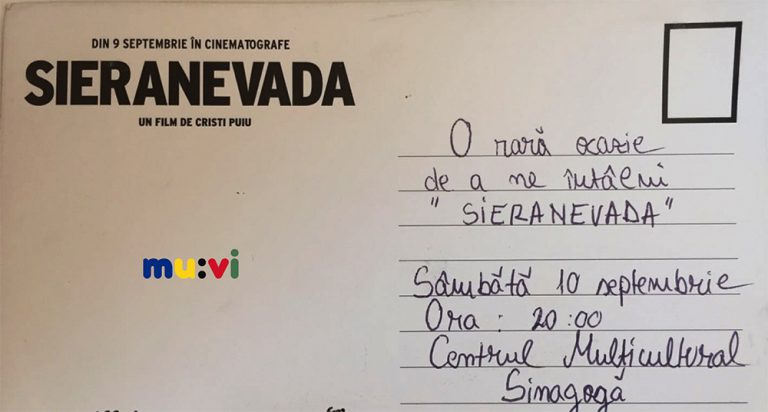 DIN 9 SEPTEMBRIE ÎN CINEMATOGRAFE
SIERANEVADA
UN FILM DE CRISTI PUIU
mu:vi
O rară ocazie
de a ne întâlni
"SIERANEVADA"
Sâmbătă 10 septembrie
Ora : 20:00
Centrul Multicultural
Sinagogă